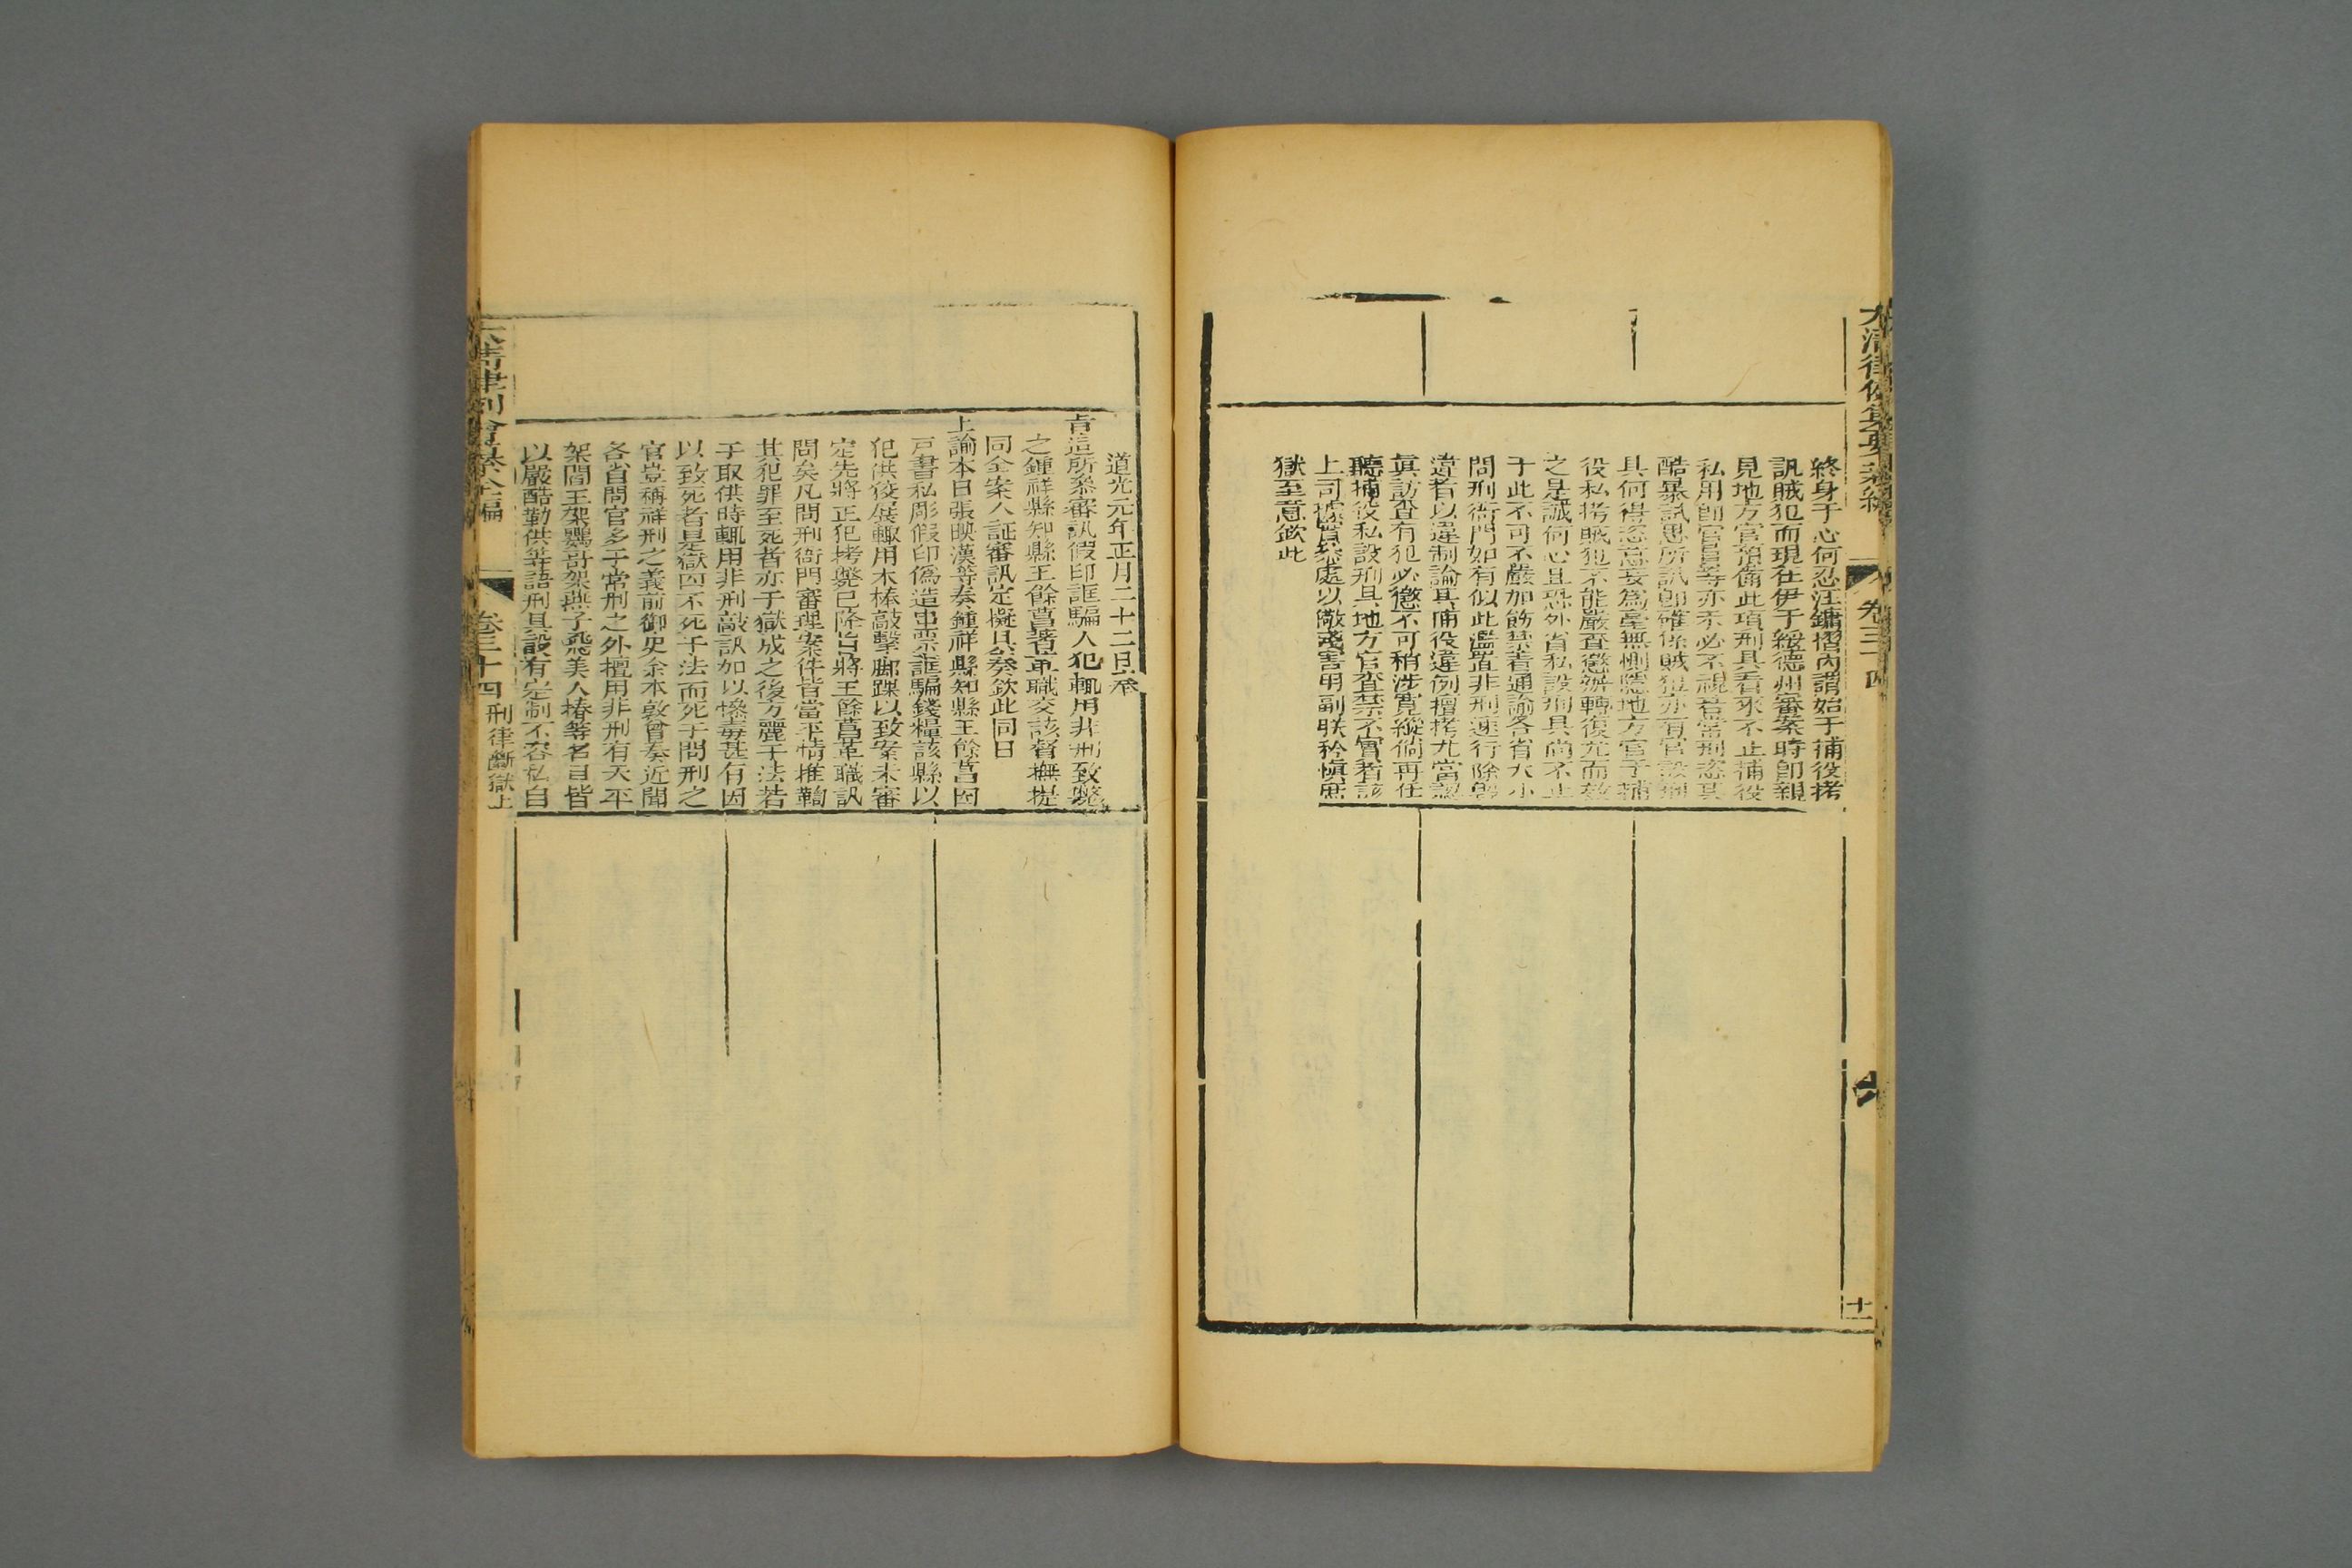 終身于心何忍汪鏞摺內謂始于捕役拷
訊賊犯而現在伊于綏德州審案時卽親
見地方官預備此項刑具看來不止捕役
私用卽官長等亦未必不視若常刑恣其
酷暴試思所訊卽確係賊犯亦有官設刑
具何得恣意妄爲毫無惻隱地方官于捕
役私拷賊犯不能嚴查懲辦轉復尤而效
之是誠何心且恐外省私設刑具尙不止
于此不可不嚴加飭禁着通諭各省大小
問刑衙門如有似此濫置非刑速行除毀
違者以違制論其捕役違例擅拷尤當認
眞訪查有犯必懲不可稍涉寬縱倘再任
聽捕役私設刑具地方官查禁不實者該
上司據實叅處以儆殘害用副朕矜愼庶
獄至意欽此
卷三十四
十
道光元年正月二十二日奉
旨這所叅審訊假印誆騙人犯輒用非刑致斃
之鍾祥縣知縣王餘菖著革職交該督撫提
同全案人証審訊定擬具奏欽此同日
上諭本日張映漢等奏鍾祥縣知縣王餘菖因
戸書私彫假印偽造串票誆騙錢糧該縣以
犯供狡展輒用木棒敲擊腳踝以致案未審
定先將正犯拷斃已降旨將王餘菖革職訊
問矣凡問刑衙門審理案件皆當平情推鞫
其犯罪至死者亦于獄成之後方麗于法若
于取供時輒用非刑敲訊加以慘毒甚有因
以致死者是獄囚不死于法而死于問刑之
官豈稱祥刑之義前御史余本敦曾奏近聞
各省問官多于常刑之外擅用非刑有天平
架閻王架鸚哥架燕子飛美人樁等名目皆
以嚴酷勒供等語刑具設有定制不容私自
大清律例會纂全編
卷三十四 刑律斷獄上